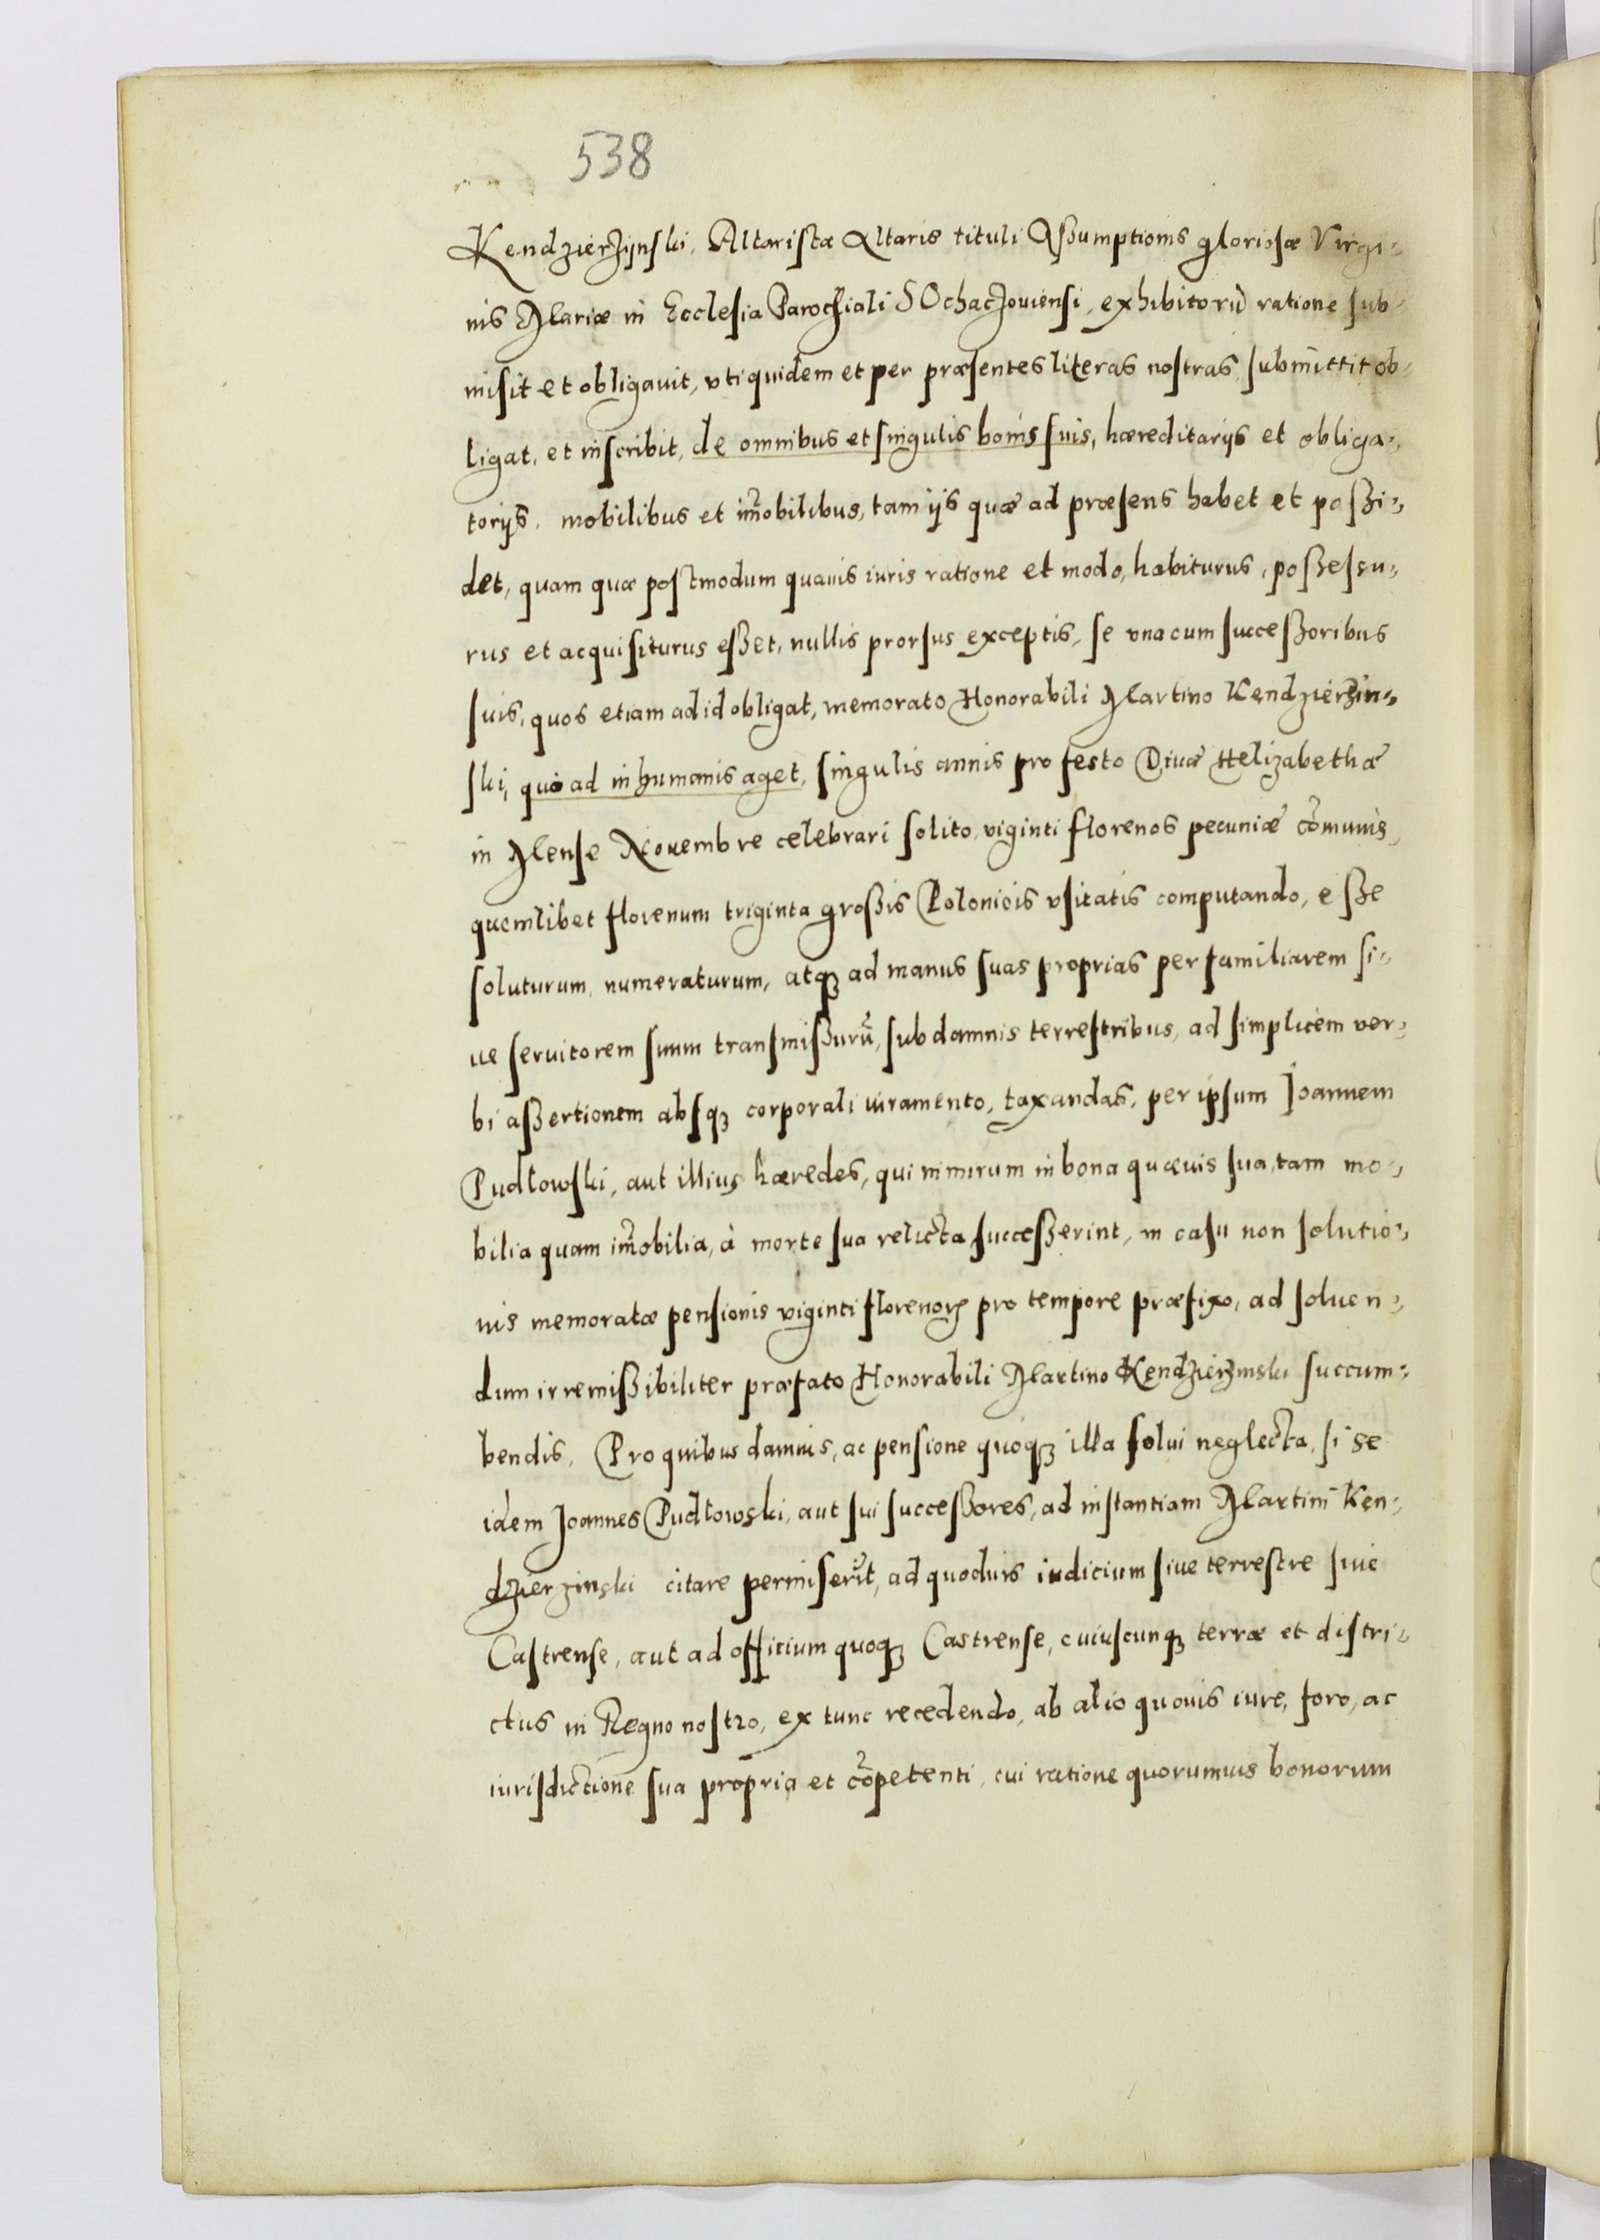 538
Kendzierzynski, Altaristæ Altaris tituli Assumptionis gloriosæ Virgi-
nis Mariæ in Ecclesia Parochiali SOchaczouiensi, exhibitorũ ratione sub-
misit et obligauit, vti quidem et per præsentes literas nostras submittit ob-
ligat, et inscribit, de omnibus et singulis bonis suis, hæreditarijs et obliga-
torijs, mobilibus et im̃obilibus, tam ijs quæ ad præsens habet et possi-
det, quam quæ postmodum quauis iuris ratione et modo, habiturus, possessu-
rus et acquisiturus esset, nullis prorsus exceptis, se vna cum successoribus
suis, quos etiam ad id obligat, memorato Honorabili Martino Kendzierzin-
ski, quo ad in humanis aget, singulis annis pro festo Diuæ Helizabethæ
in Mense Nouembre celebrari solito, viginti florenos pecuniæ com̃unis,
quemlibet florenum triginta grossis Polonicis vsitatis computando, esse
soluturum, numeraturum, atq; ad manus suas proprias per familiarem si-
ue seruitorem suum transmissurũ, sub damnis terrestribus, ad simplicem ver-
bi assertionem absq; corporali iuramento, taxandas, per ipsum Joannem
Pudlowski, aut illius hæredes, qui nimirum in bona quæuis sua, tam mo-
bilia quam im̃obilia, à morte sua relicta successerint, in casu non solutio-
nis memoratæ pensionis viginti florenorꝝ pro tempore præfixo, ad soluen-
dum irremissibiliter præfato Honorabili Martino Kendzierzinski succum-
bendis. Pro quibus damnis, ac pensione quoq; illa solui neglecta, si se
idem Joannes Pudlowski, aut sui successores, ad instantiam Martini Ken-
dzierzinski citare permiserĩt, ad quoduis iudicium siue terrestre siue
Castrense, aut ad officium quoq; Castrense, cuiuscunq; terræ et distri-
ctus in Regno nostro, ex tunc recedendo, ab alio quouis iure, foro, ac
iurisdictione sua propria et com̃petenti, cui ratione quorumuis bonorum